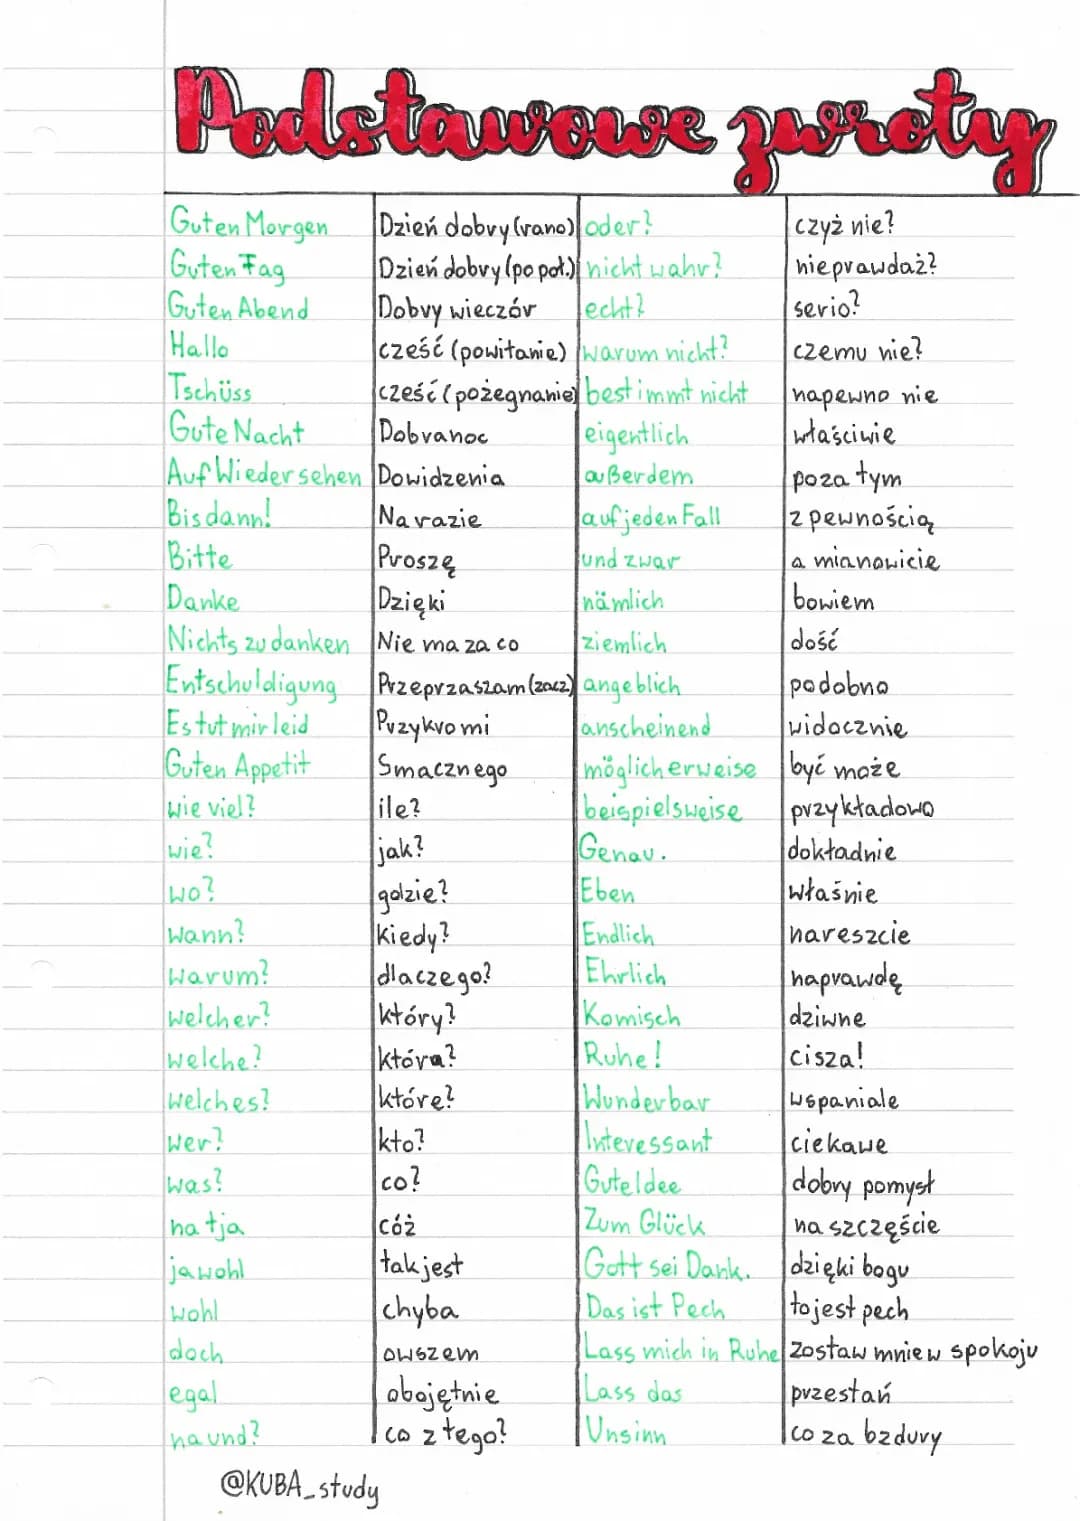 Podstawowe zwroty
Guten Morgen Dzień dobry (rano) oder? czyż nie?
Guten Tag Dzień dobry (po poł.) nicht wahr? nieprawdaż?
Guten Abend Dobry wieczór echt? serio?
Hallo cześć (powitanie) warum nicht? czemu nie?
Tschüss cześć (pożegnanie) bestimmt nicht napewno nie
Gute Nacht Dobranoc eigentlich właściwie
Auf Wiedersehen Dowidzenia außerdem poza tym
Bis dann! Na razie auf jeden Fall z pewnością
Bitte Proszę und zwar a mianowicie
Danke Dzięki nämlich bowiem
Nichts zu danken Nie ma za co ziemlich dość
Entschuldigung Przepraszam (zacz) angeblich podobno
Es tut mir leid Przykro mi anscheinend widocznie
Guten Appetit Smacznego möglicherweise być może
wie viel? ile? beispielsweise przykładowo
wie? jak? Genau. dokładnie
wo? gdzie? Eben właśnie
wann? kiedy? Endlich nareszcie
warum? dlaczego? Ehrlich naprawdę
welcher? który? Komisch dziwne
welche? która? Ruhe! cisza!
welches? które? Wunderbar wspaniale
wer? kto? Interessant ciekawe
was? co? Gute Idee dobry pomysł
na tja cóż Zum Glück na szczęście
jawohl tak jest Gott sei Dank. dzięki bogu
wohl chyba Das ist Pech to jest pech
doch owszem Lass mich in Ruhe zostaw mnie w spokoju
egal obojętnie Lass das przestań
na und? co z tego? Unsinn co za bzdury
@KUBA_study